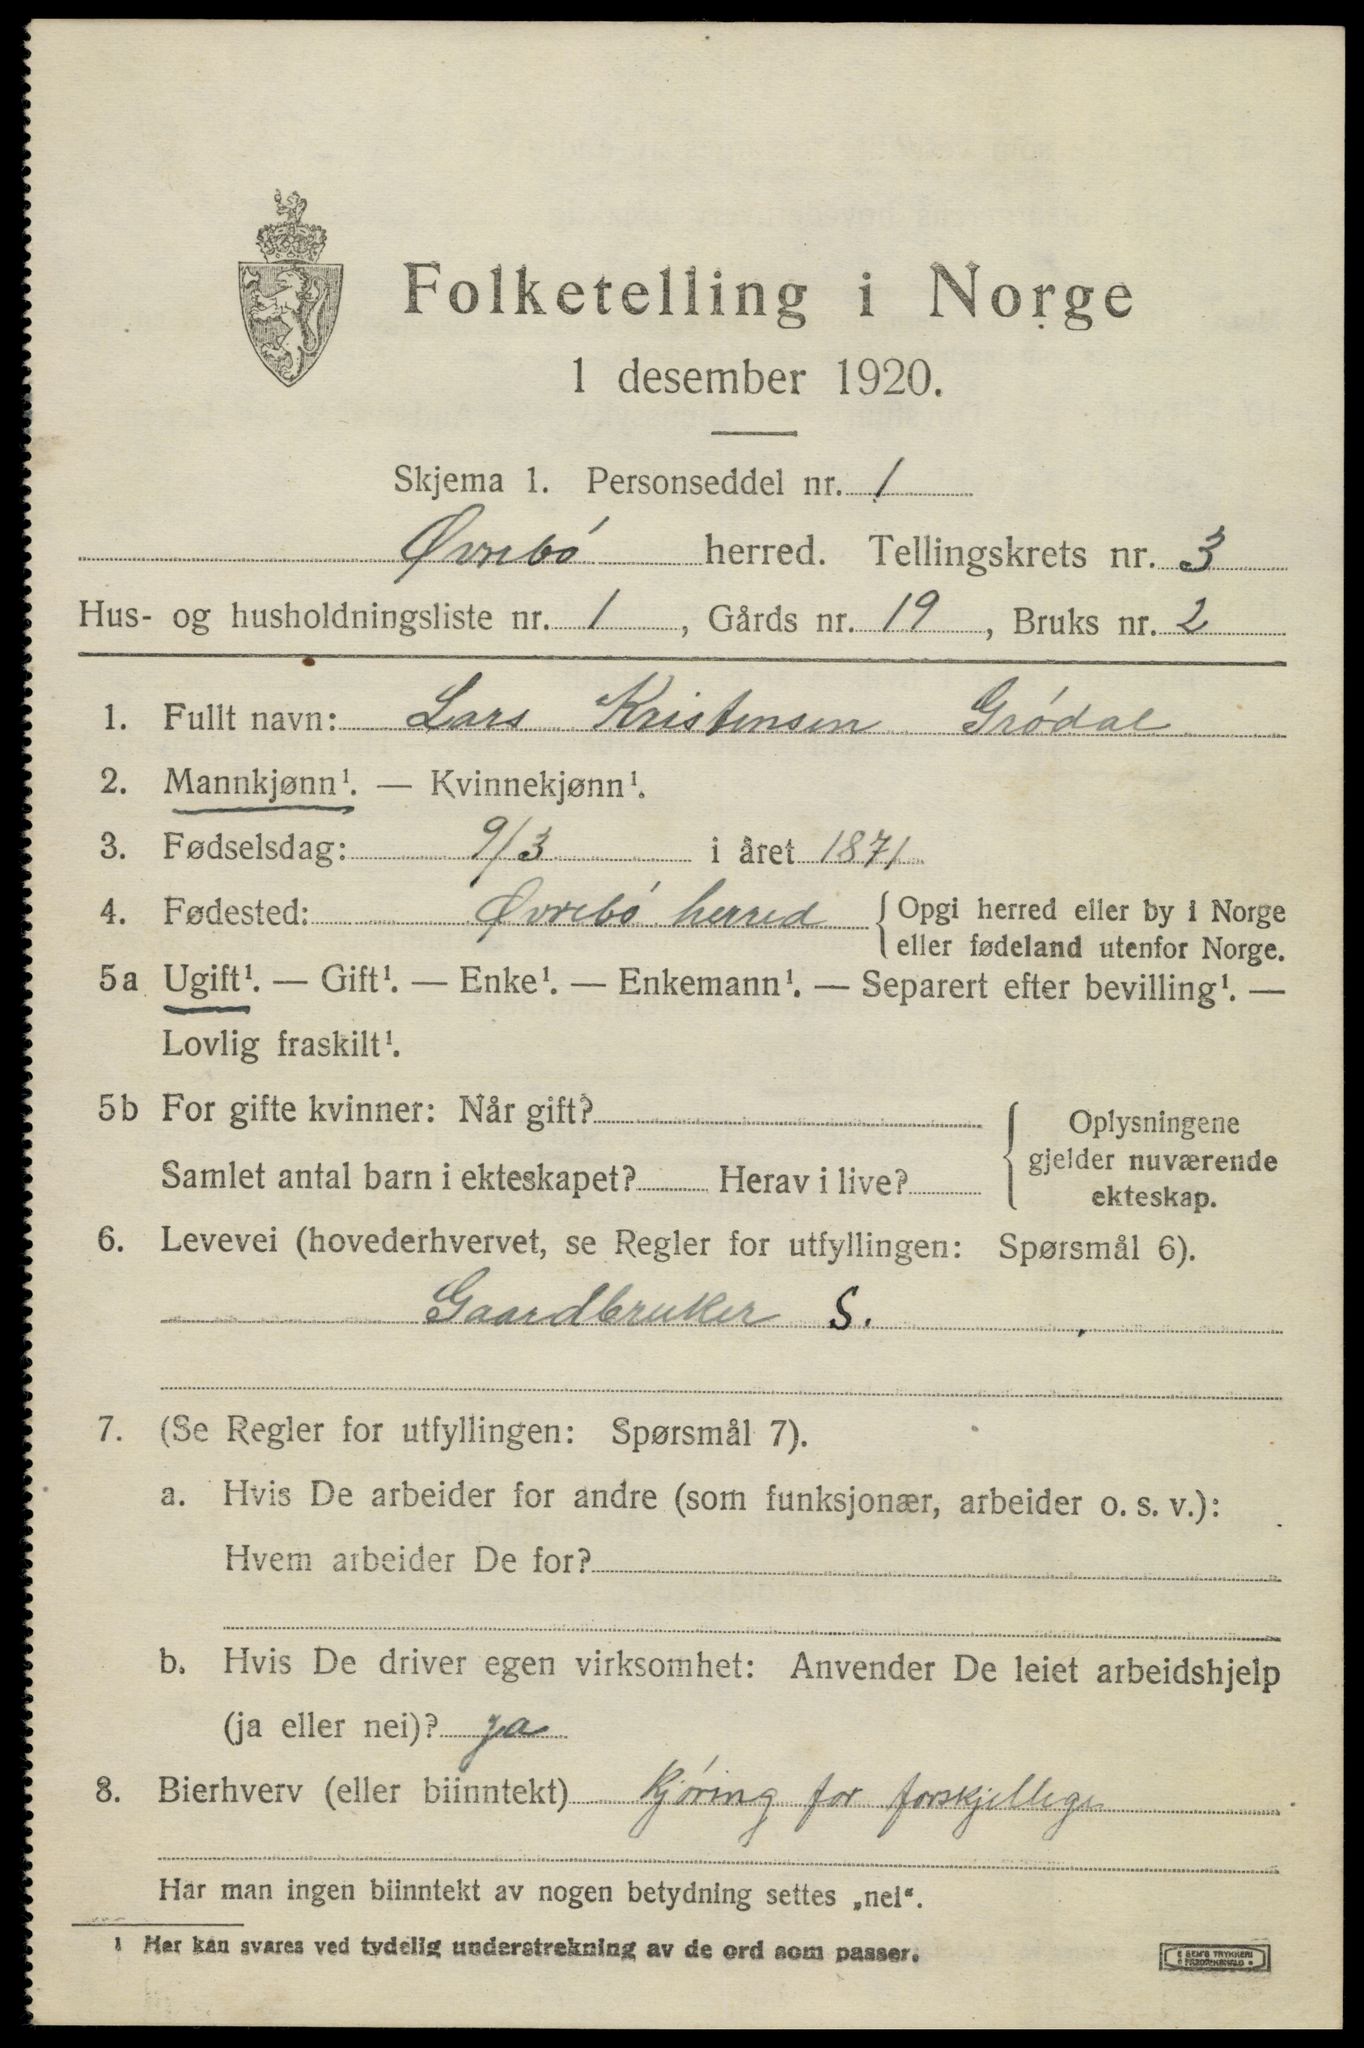 Folketelling i Norge
1 desember 1920.
Skjema 1. Personseddel nr. 1
Øvrebó herred. Tellingskrets nr. 3
Hus- og husholdningsliste nr. 1, Gårds nr. 19, Bruks nr. 2
1. Fullt navn: Lars Kristensen Gródal
2. Mannkjønn¹. — Kvinnekjønn¹.
3. Fødselsdag: 9/3 i året 1871
4. Fødested: Øvrebó herred { Opgi herred eller by i Norge
eller fødeland utenfor Norge.
5a Ugift¹. — Gift¹. — Enke¹. — Enkemann¹. — Separert efter bevilling¹. —
Lovlig fraskilt¹.
5b For gifte kvinner: Når gift?
Samlet antal barn i ekteskapet? Herav i live?
{ Oplysningene
gjelder nuværende
ekteskap.
6. Levevei (hovederhvervet, se Regler for utfyllingen: Spørsmål 6).
Gaardbruker S.
7. (Se Regler for utfyllingen: Spørsmål 7).
a. Hvis De arbeider for andre (som funksjonær, arbeider o. s. v.):
Hvem arbeider De for?
b. Hvis De driver egen virksomhet: Anvender De leiet arbeidshjelp
(ja eller nei)? ja
8. Bierhverv (eller biinntekt) kjóring for forskjellige
Har man ingen biinntekt av nogen betydning settes „nei“.
1 Her kan svares ved tydelig understrekning av de ord som passer.
E SEM'S TRYKKERI
FREDRIKSHALD